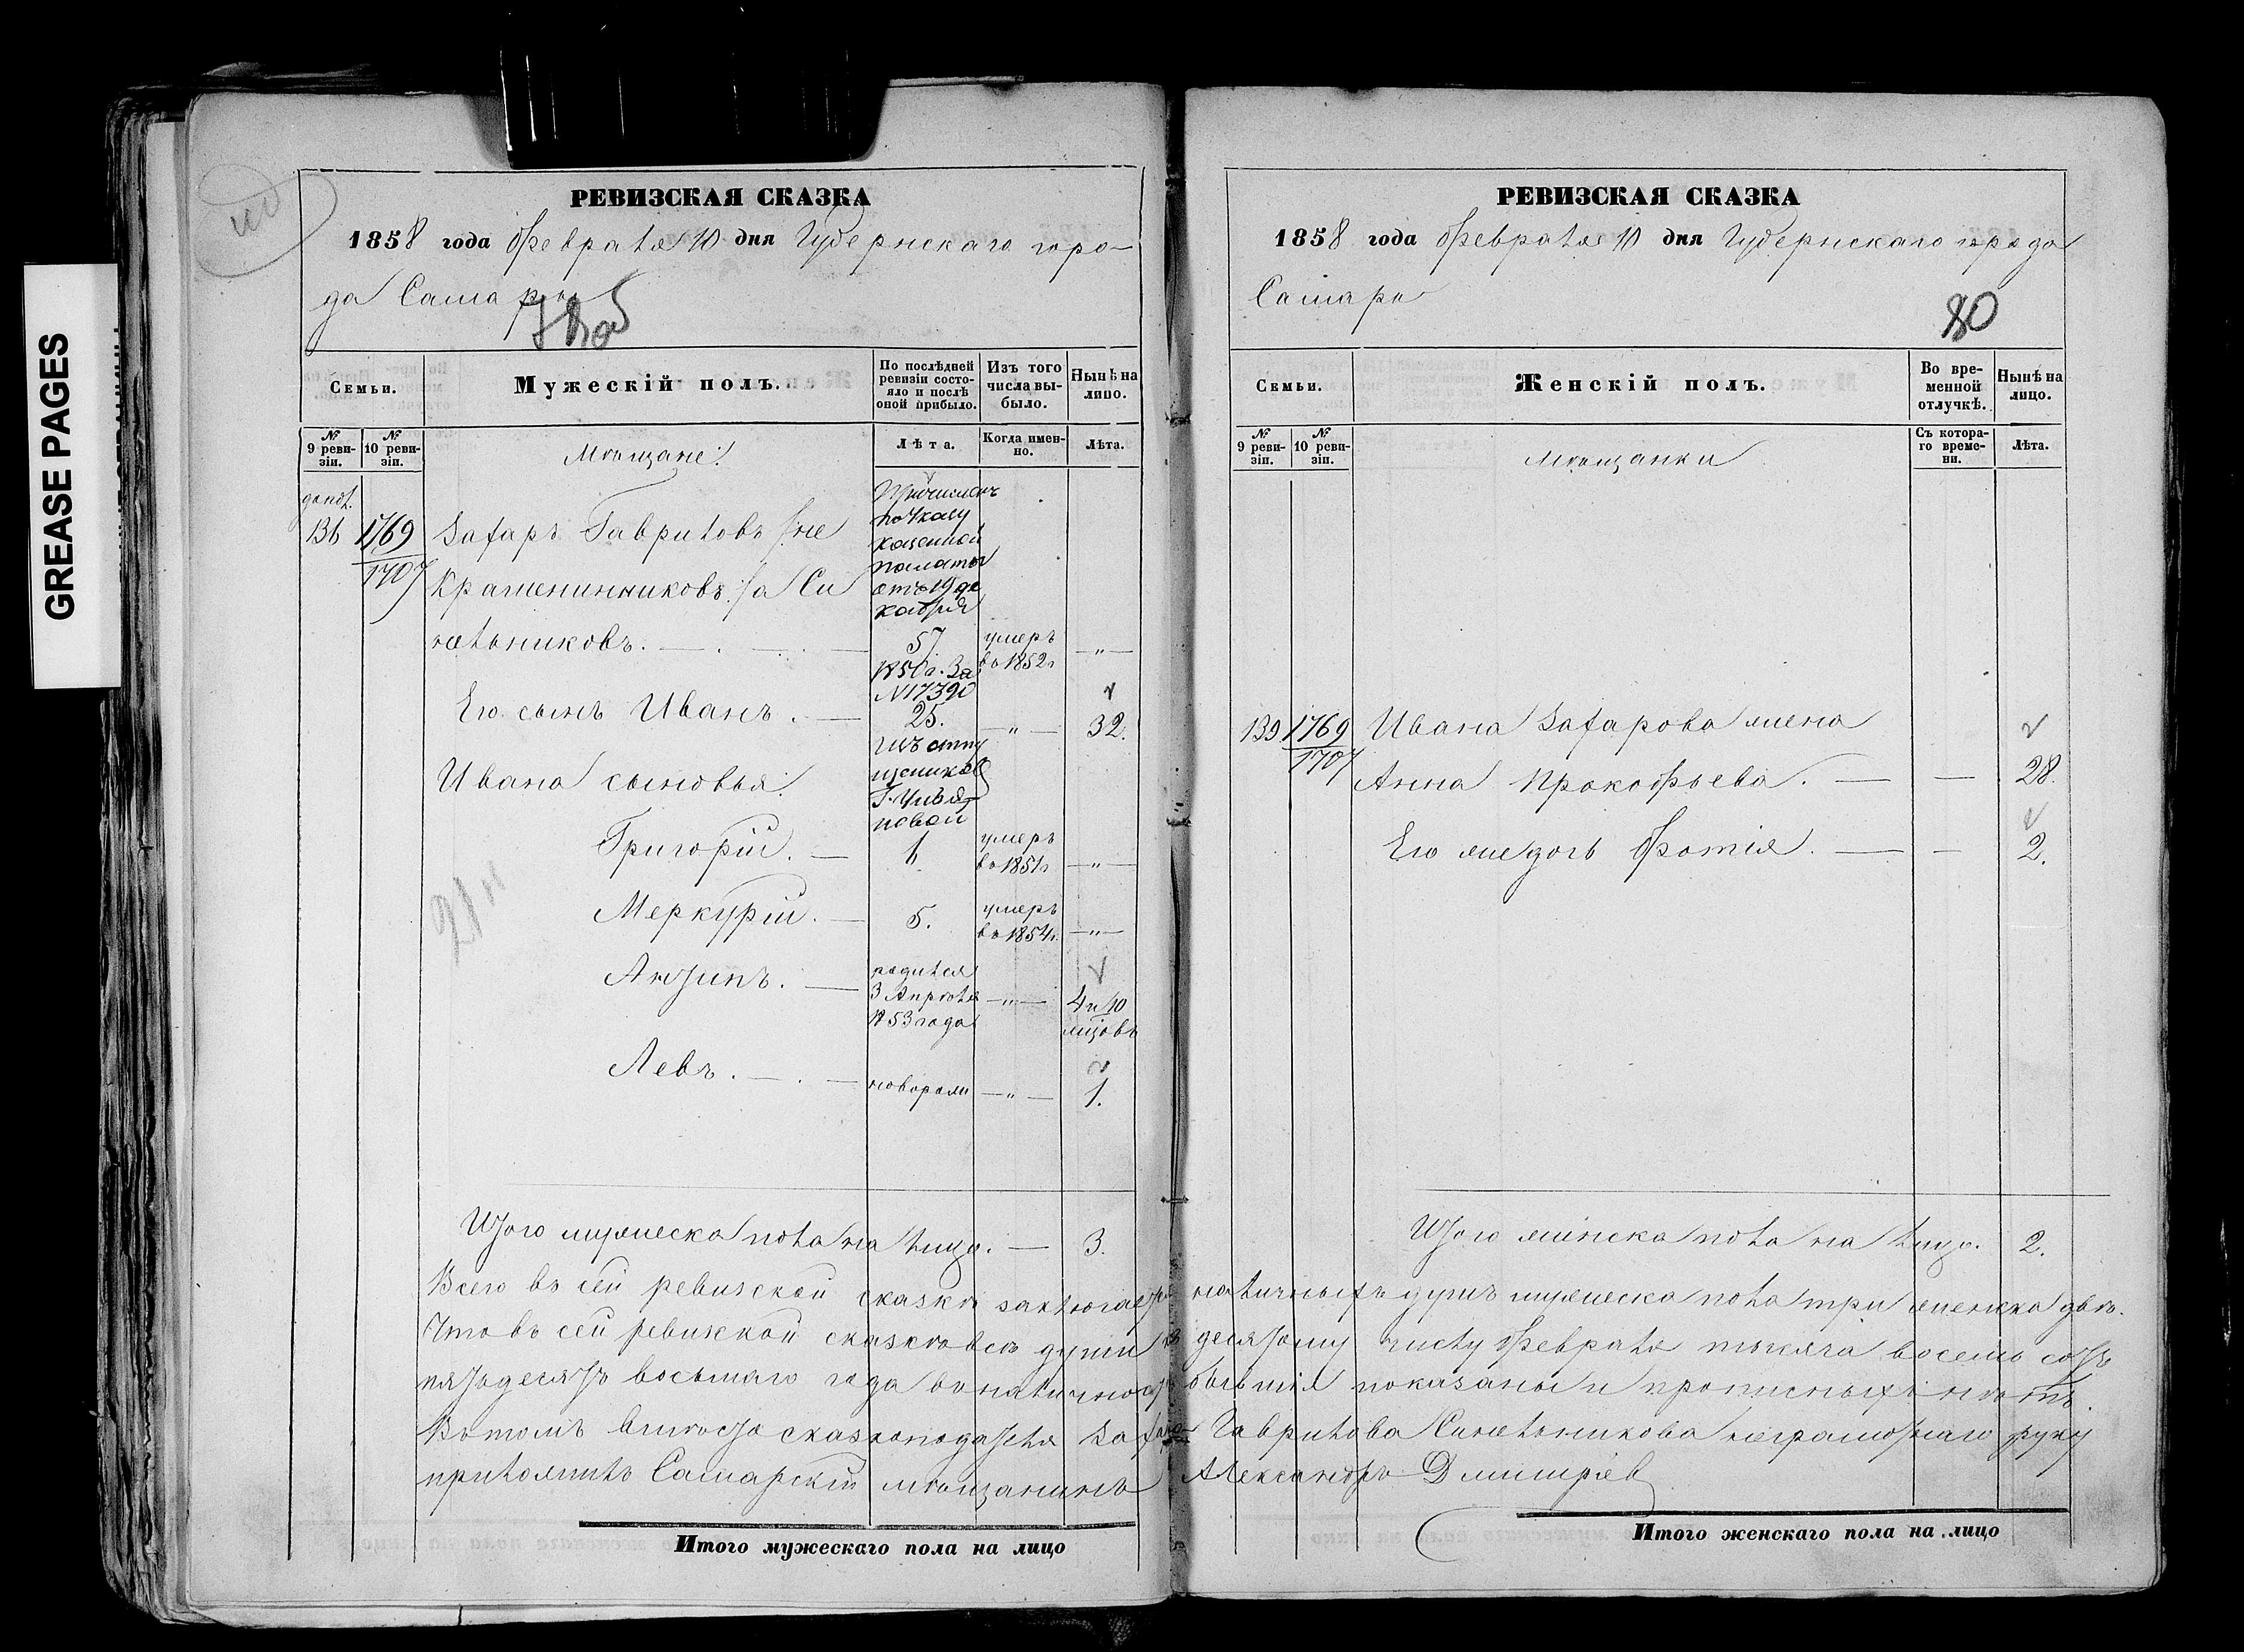 GREASE PAGES
РЕВИЗСКАЯ СКАЗКА
1858 года Февраля 10 дня Губернскаго горо-
да Самары
Семьи.
Мужескій полъ.
По послѣдней ревизіи состояло и послѣ оной прибыло.
Изъ того числа выбыло.
Нынѣ на лицо.
№ 9 ревизіи.
№ 10 ревизіи.
Мѣщане:
Лѣта.
Когда именно.
Лѣта.
допол.
136 1769
1707
Захаръ Гавриловъ /не
Крашенинниковъ./а Си
нельниковъ.
Причисленъ
по Указу
казенной
палаты
отъ 19 де
кабря
57
1850 г. За
N 17390
умеръ
въ 1852 г
Его сынъ Иванъ. 25. 32.
изъ отпу
щениковъ
Ивана сыновья:
Григорій. 1 умеръ въ 1851 г
Меркурій. 5. умеръ въ 1854 г.
Антипъ. родился 3 Апрѣля 1853 года 4 и 10 мцовъ
Левъ. новорож 1.
Итого мужеска пола на лицо. 3.
РЕВИЗСКАЯ СКАЗКА
1858 года Февраля 10 дня Губернскаго города
Самары
80
Семьи.
Женскій полъ.
Во временной отлучкѣ.
Нынѣ на лицо.
№ 9 ревизіи.
№ 10 ревизіи.
Мѣщанки
Съ котораго времени.
Лѣта.
139 1769 Ивана Захарова жена
1707 Анна Прокофьева. 28.
Его же дочь Фотія. 2.
Итого женска пола на лицо. 2.
Всего въ сей ревизской сказкѣ заключается наличныхъ душъ мужеска пола три женска двѣ.
Что въ сей ревизской сказкѣ всѣ души къ десятому числу Февраля мѣсяца восемь сотъ
пятьдесятъ восьмаго года въ наличности бывшія показаны и прописныхъ нѣтъ.
Въ томъ вмѣсто сказкоподателя Захара Гаврилова Синельникова неграмотнаго руку
приложилъ Самарскій мѣщанинъ Александръ Дмитріевъ
Итого мужескаго пола на лицо
Итого женскаго пола на лицо